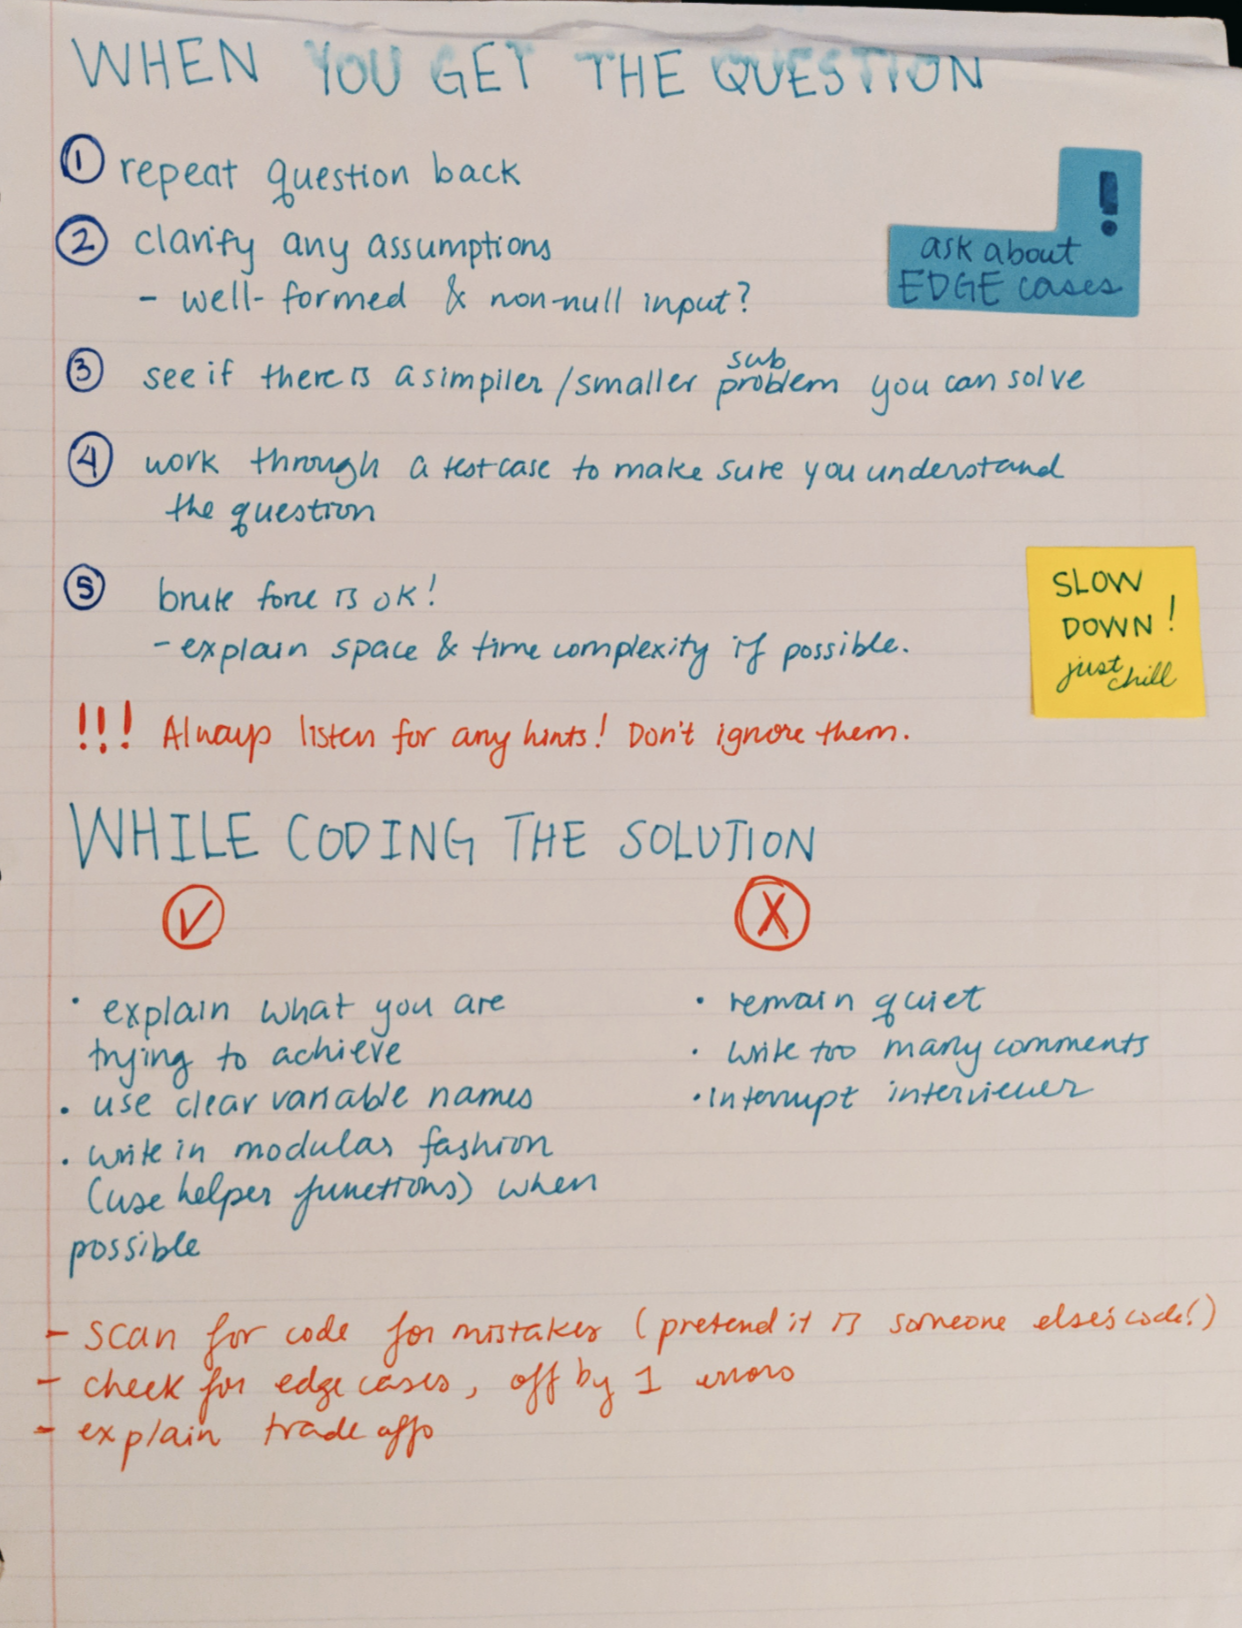 WHEN YOU GET THE QUESTION
1 repeat question back
2 clarify any assumptions
- well-formed & non-null input?
!
ask about
EDGE cases
3 see if there is a simpiler/smaller sub problem you can solve
4 work through a test case to make sure you understand
the question
5 brute force is ok!
- explain space & time complexity if possible.
SLOW
DOWN!
just chill
!!! Always listen for any hints! Don't ignore them.
WHILE CODING THE SOLUTION
✓
X
• explain what you are
trying to achieve
• use clear variable names
• write in modular fashion
(use helper functions) when
possible
• remain quiet
• write too many comments
• interrupt interviewer
- scan for code for mistakes (pretend it is someone else's code!)
- check for edge cases, off by 1 errors
- explain trade offs